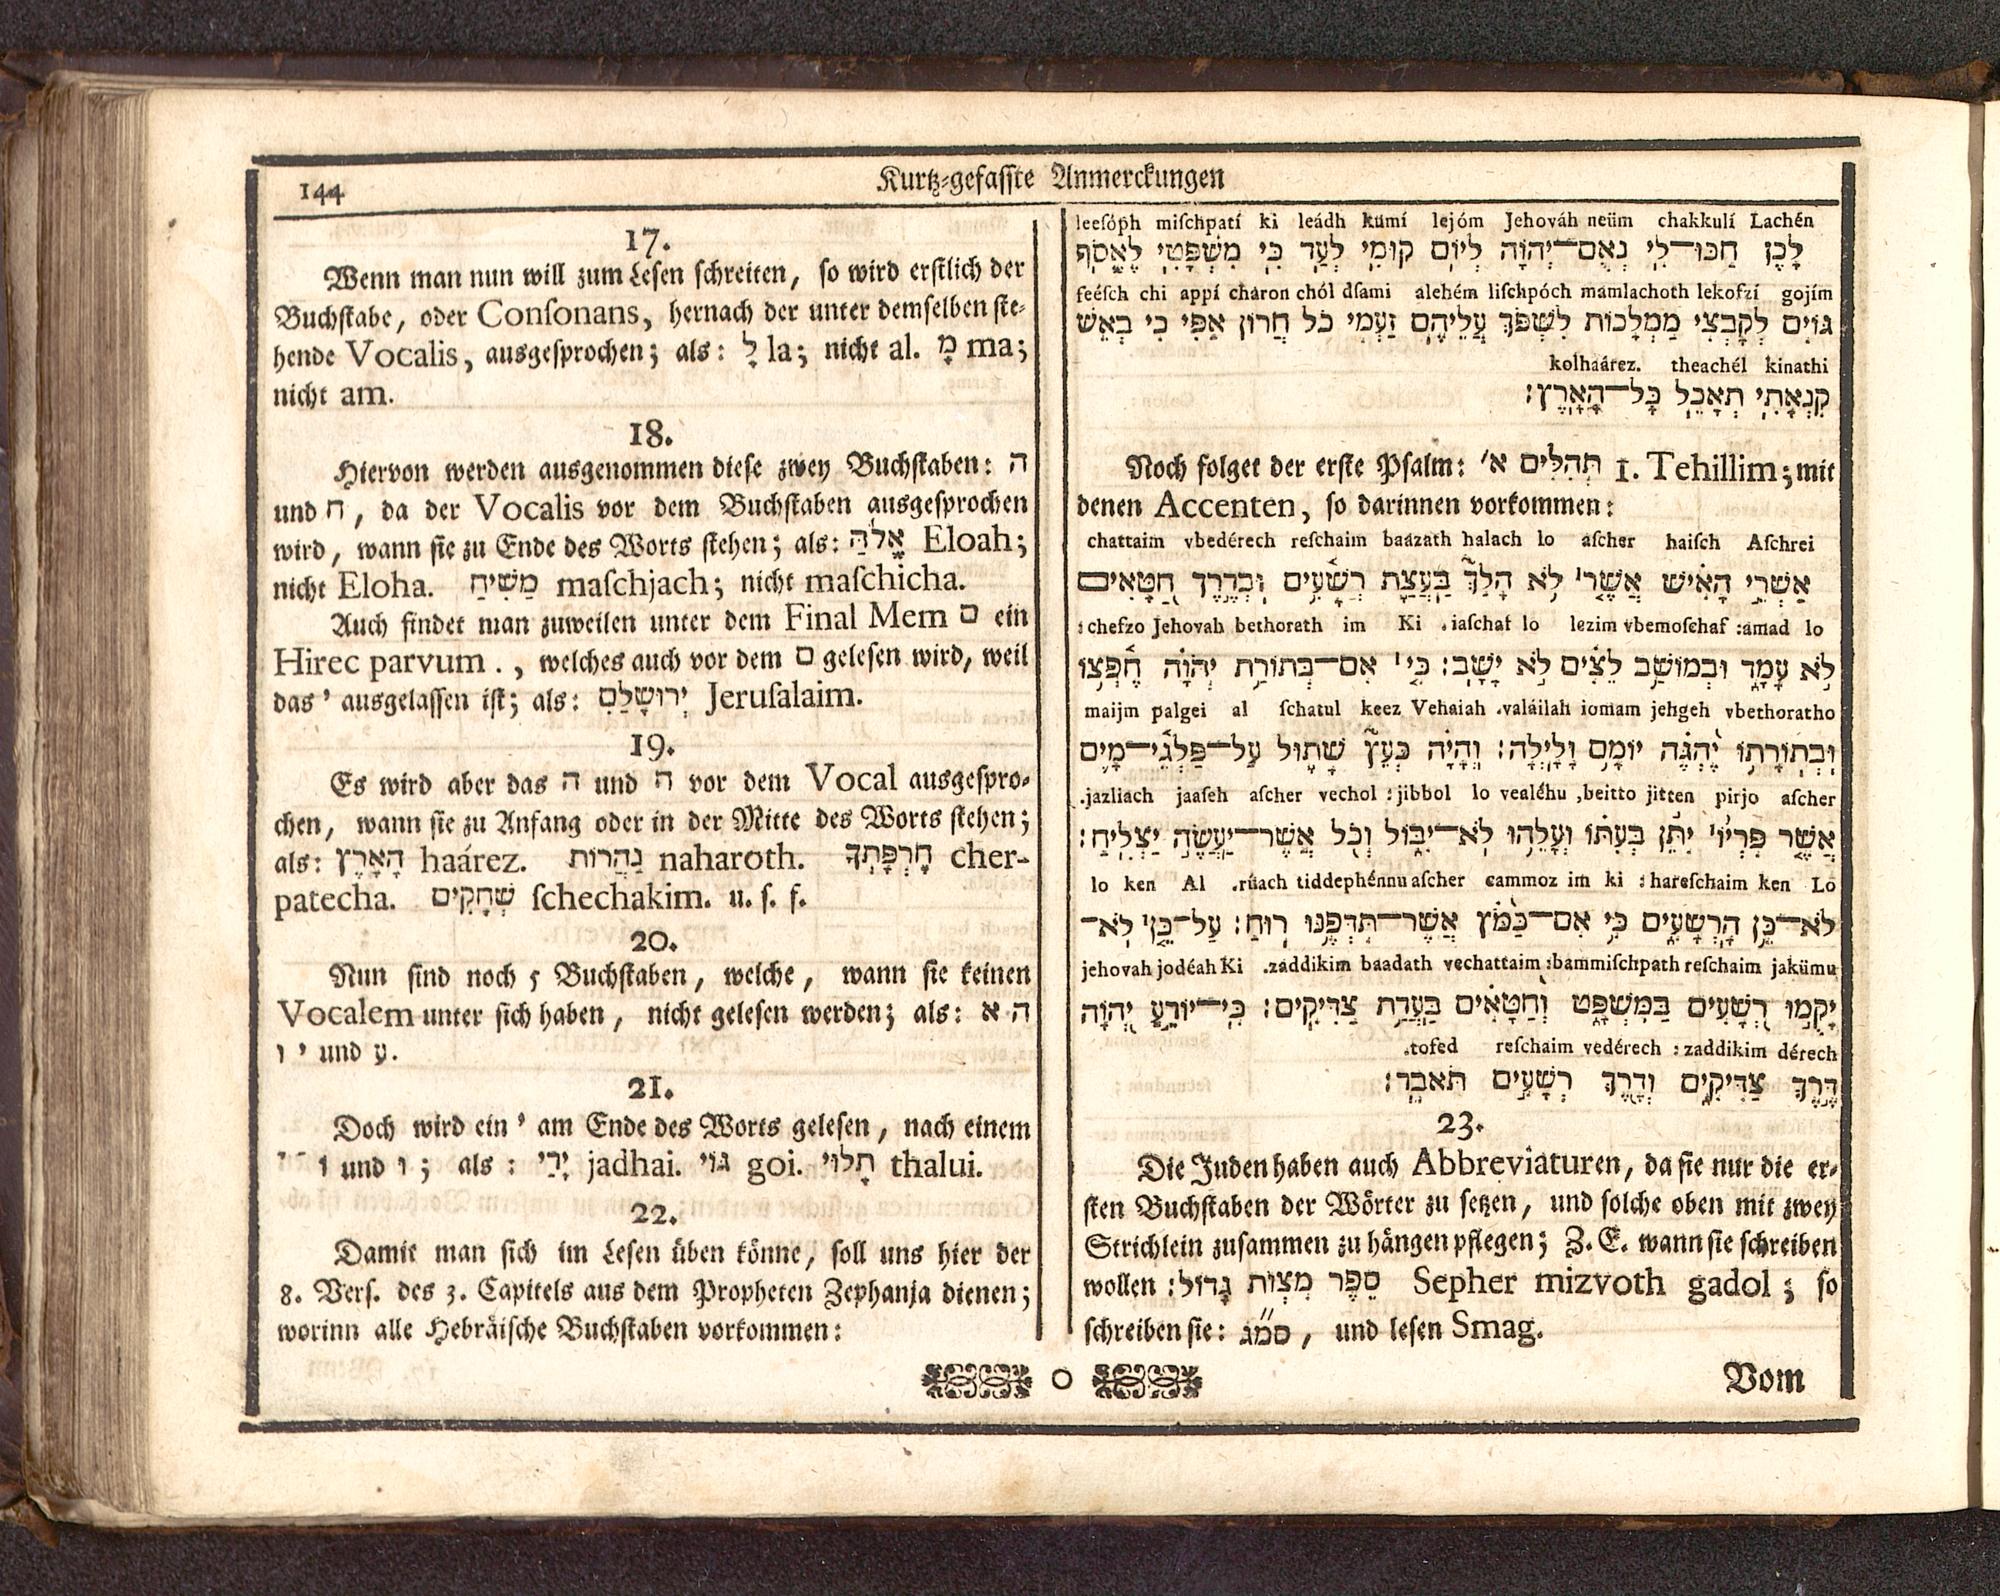 144
Kurtz-gefasste Anmerckungen
17.
Wenn man nun will zum Lesen schreiten, so wird erstlich der
Buchstabe, oder Consonans, hernach der unter demselben ste-
hende Vocalis, ausgesprochen; als: לָ la; nicht al. מָ ma;
nicht am.
18.
Hiervon werden ausgenommen diese zwey Buchstaben: ה
und ח, da der Vocalis vor dem Buchstaben ausgesprochen
wird, wann sie zu Ende des Worts stehen; als: אֱלֹהַּ Eloah;
nicht Eloha. מַשִׁיחַ maschjach; nicht maschicha.
Auch findet man zuweilen unter dem Final Mem ם ein
Hirec parvum . , welches auch vor dem ם gelesen wird, weil
das י ausgelassen ist; als: יְרוּשָׁלַםִ Jerusalaim.
19.
Es wird aber das ה und ח vor dem Vocal ausgespro-
chen, wann sie zu Anfang oder in der Mitte des Worts stehen;
als: הָאָרֶץ haárez. נַהֲרוֹת naharoth. חֶרְפָּתְךָ cher-
patecha. שְׁחָקִים schechakim. u. s. f.
20.
Nun sind noch 5 Buchstaben, welche, wann sie keinen
Vocalem unter sich haben, nicht gelesen werden; als: א ה
ו י und ע.
21.
Doch wird ein י am Ende des Worts gelesen, nach einem
und ; als: יָדַי jadhai. גוֹי goi. תָלוּי thalui.
22.
Damit man sich im Lesen üben könne, soll uns hier der
8. Vers. des 3. Capitels aus dem Propheten Zephanja dienen;
worinn alle Hebräische Buchstaben vorkommen:
leesóph mischpatí ki leádh kümí lejóm Jehováh neüm chakkulí Lachén
לָכֵן חַכּוּ־לִי נְאֻם־יְהוָֹה לְיוֹם קוּמִי לְעַד כִּי מִשְׁפָּטִי לֶאֱסֹף
feésch chi appí charon chól dsami alehém lischpóch mamlachoth lekofzí gojím
גּוֹיִם לְקָבְצִי מַמְלָכוֹת לִשְׁפֹּךְ עֲלֵיהֶם זַעְמִי כֹּל חֲרוֹן אַפִּי כִּי בְּאֵשׁ
kolhaárez. theachél kinathi
קִנְאָתִי תֵּאָכֵל כָּל־הָאָרֶץ׃
Noch folget der erste Psalm: תְּהִלִּים א׳ 1. Tehillim; mit
denen Accenten, so darinnen vorkommen:
chattaim vbedérech reschaim baázath halach lo ascher haisch Aschrei
אַשְׁרֵי הָאִישׁ אֲשֶׁר׀ לֹא הָלַךְ בַּעֲצַת רְשָׁעִים וּבְדֶרֶךְ חַטָּאִים
:chefzo Jehovah bethorath im Ki .iaschaf lo lezim vbemoschaf :amad lo
לֹא עָמָד וּבְמוֹשַׁב לֵצִים לֹא יָשָׁב׃ כִּי׀ אִם־בְּתוֹרַת יְהוָֹה חֶפְצוֹ
maijm palgei al schatul keez Vehaiah .valáilah iomam jehgeh vbethoratho
וּבְתוֹרָתוֹ יֶהְגֶּה יוֹמָם וָלָיְלָה׃ וְהָיָה כְּעֵץ שָׁתוּל עַל־פַּלְגֵי־מָיִם
.jazliach jaaseh ascher vechol :jibbol lo vealéhu ,beitto jitten pirjo ascher
אֲשֶׁר פִּרְיוֹ׀ יִתֵּן בְּעִתּוֹ וְעָלֵהוּ לֹא־יִבּוֹל וְכֹל אֲשֶׁר־יַעֲשֶׂה יַצְלִיחַ׃
lo ken Al .rúach tiddephénnu ascher cammoz im ki :hareschaim ken Lo
לֹא־כֵן הָרְשָׁעִים כִּי אִם־כַּמֹּץ אֲשֶׁר־תִּדְּפֶנּוּ רוּחַ׃ עַל־כֵּן׀ לֹא־
jehovah jodéah Ki .zaddikim baadath vechattaim :bammischpath reschaim jakümu
יָקֻמוּ רְשָׁעִים בַּמִּשְׁפָּט וְחַטָּאִים בַּעֲדַת צַדִּיקִים׃ כִּי־יוֹדֵעַ יְהוָֹה
.tofed reschaim vedérech :zaddikim dérech
דֶּרֶךְ צַדִּיקִים וְדֶרֶךְ רְשָׁעִים תֹּאבֵד׃
23.
Die Juden haben auch Abbreviaturen, da sie nur die er-
sten Buchstaben der Wörter zu setzen, und solche oben mit zwey
Strichlein zusammen zu hängen pflegen; Z. E. wann sie schreiben
wollen: סֵפֶר מִצְוֹת גָּדוֹל׃ Sepher mizvoth gadol; so
schreiben sie: סמ״ג, und lesen Smag.
Vom